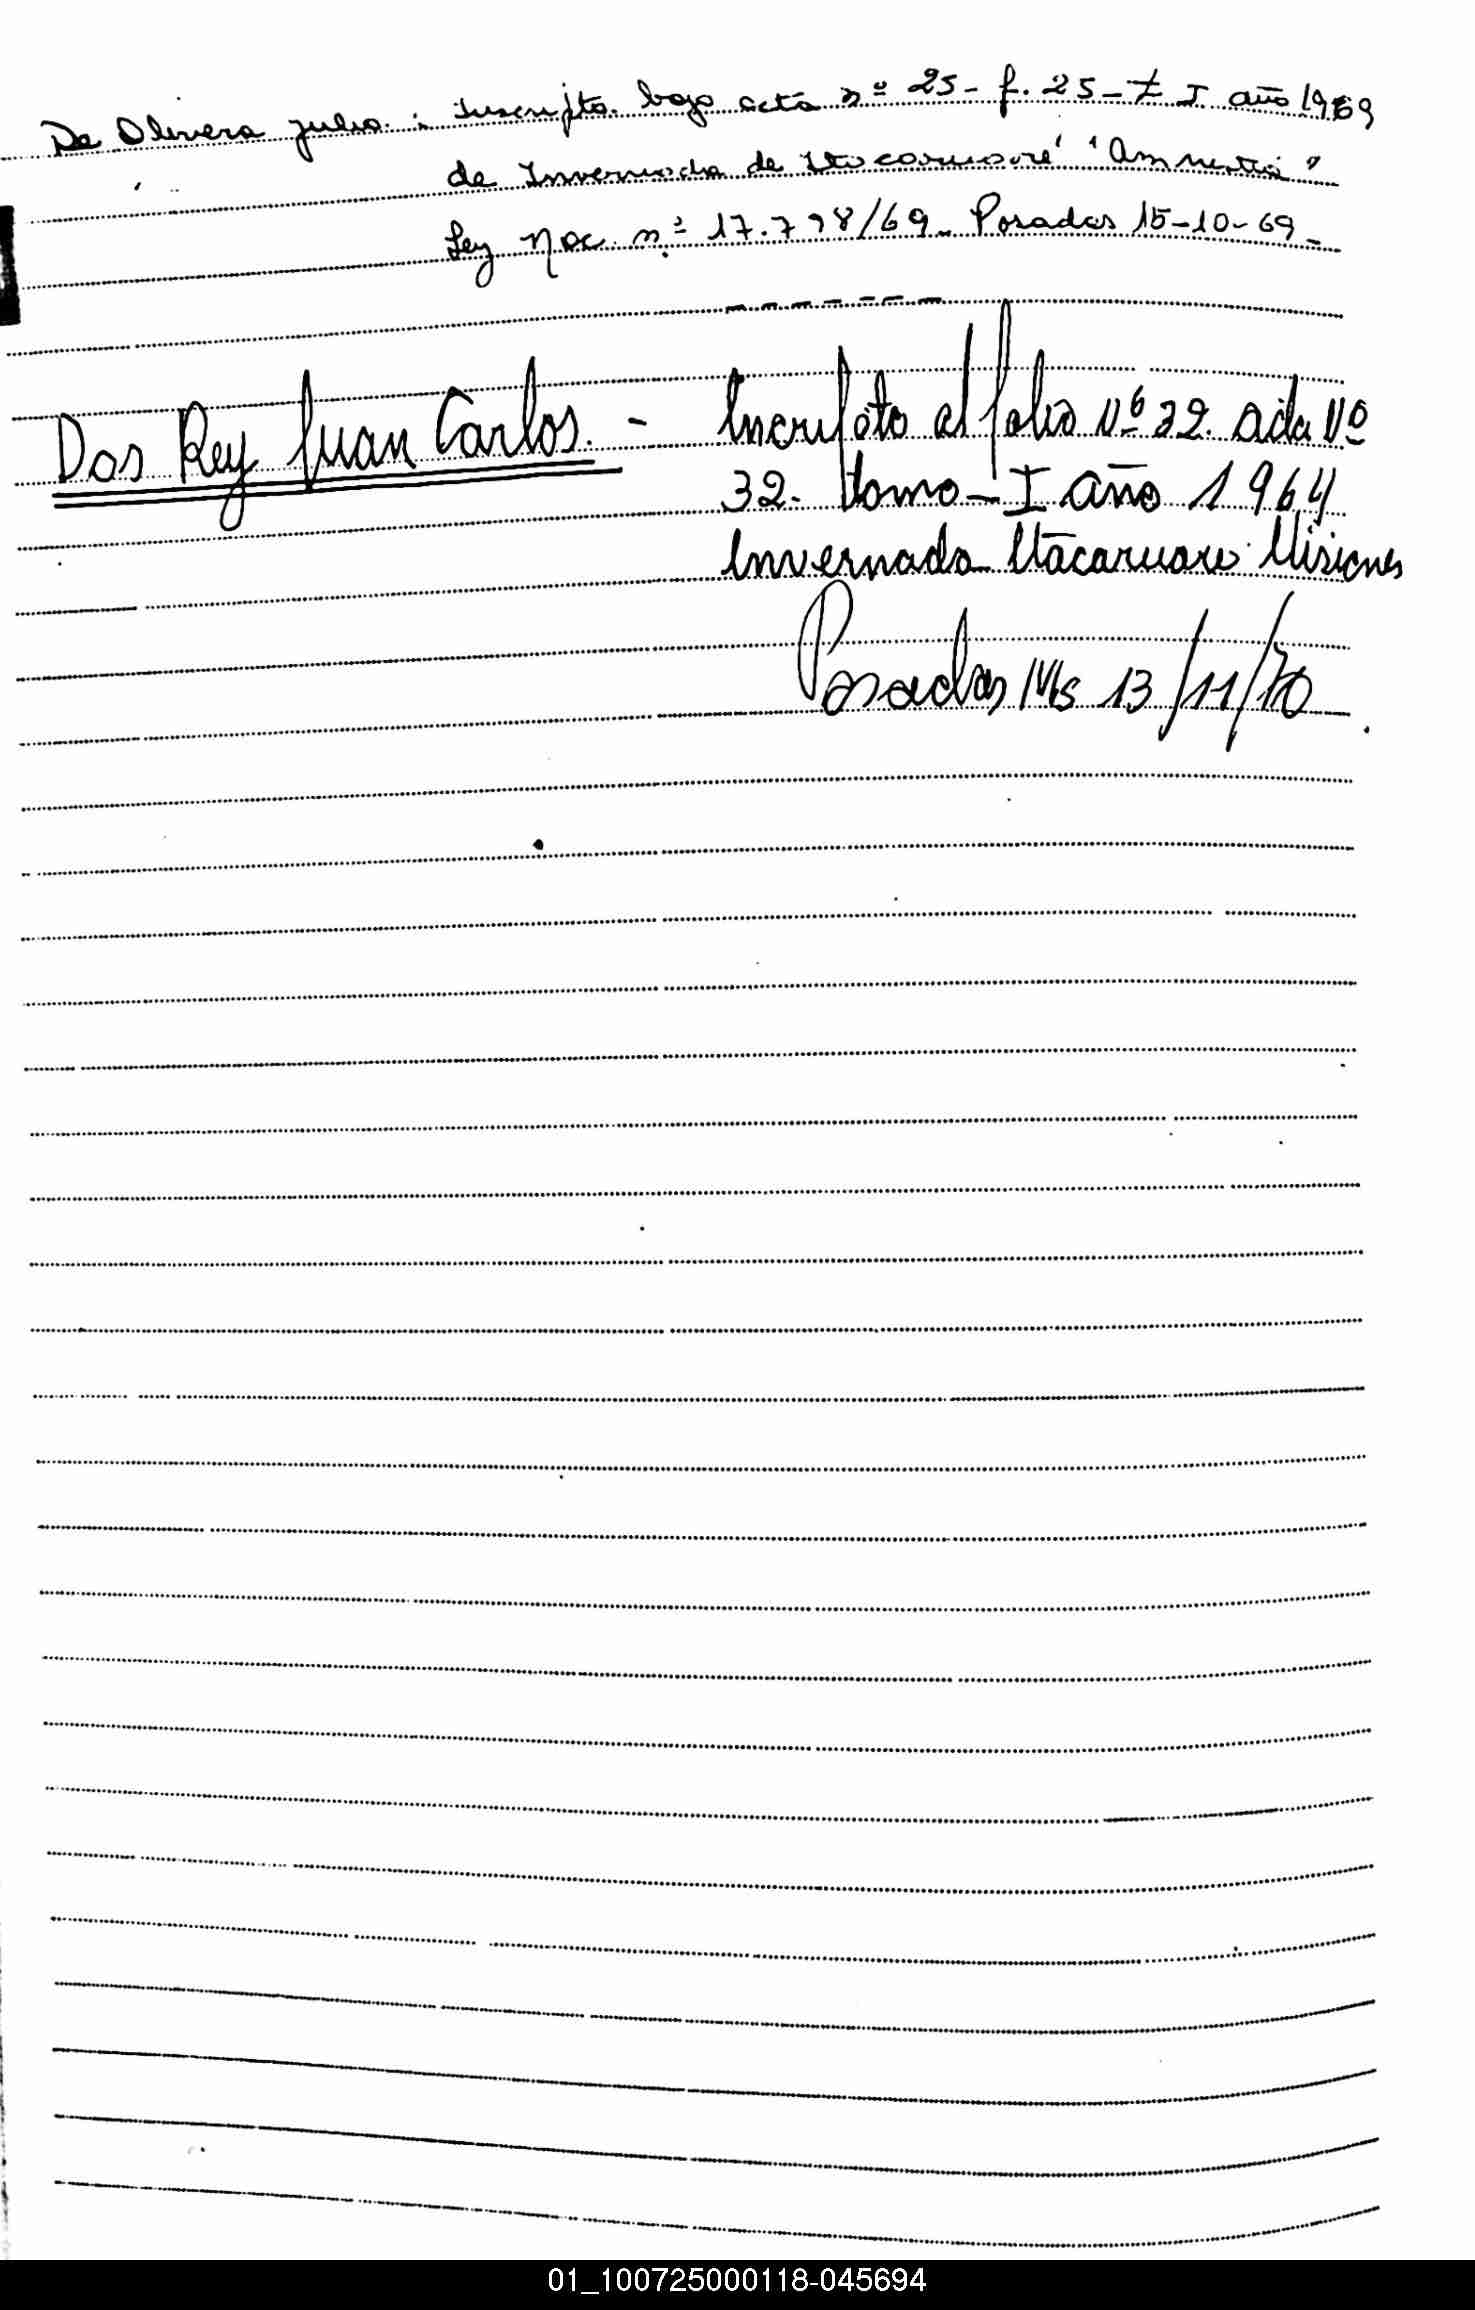 De Olivera Julio. : Inscripto. bajo acta nº 25 - f. 25 - T I año 1969
de Invernada de Itacaruaré "Amnistia"
Ley Nac. nº 17.798/69 - Posadas 15-10-69 -
Dos Rey Juan Carlos. - Incripto al folio Nº 32. acta Nº
32. tomo - I año 1964
Invernada Itacaruare Misiones
Posadas Mis 13/11/70
01_100725000118-045694